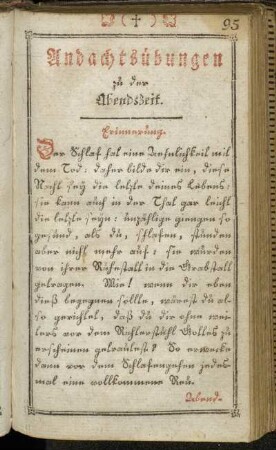 ( + )
95
Andachtsübungen
zu der
Abendszeit.
Erinnerung.
Der Schlaf hat eine Aehnlichkeit mit
dem Tod: daher bilde dir ein, diese
Nacht sey die letzte deines Lebens:
sie kann auch in der That gar leicht
die letzte seyn: unzählige giengen so
gesund, als du, schlafen, stunden
aber nicht mehr auf: sie wurden
von ihrer Ruhestatt in die Grabstatt
getragen. Wie! wenn dir eben
dieß begegnen sollte, wärest du al-
so gerichtet, daß du dir ohne wei-
ters vor dem Richterstuhl Gottes zu
erscheinen getrautest? So erwecke
dann vor dem Schlafengehen jedes-
mal eine vollkommene Reu.
Abend-